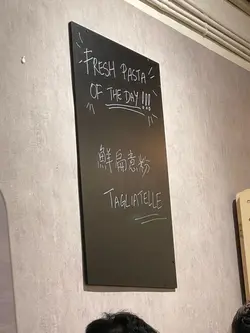 FRESH PASTA
OF THE DAY!!!
鮮扁意粉
TAGLIATELLE